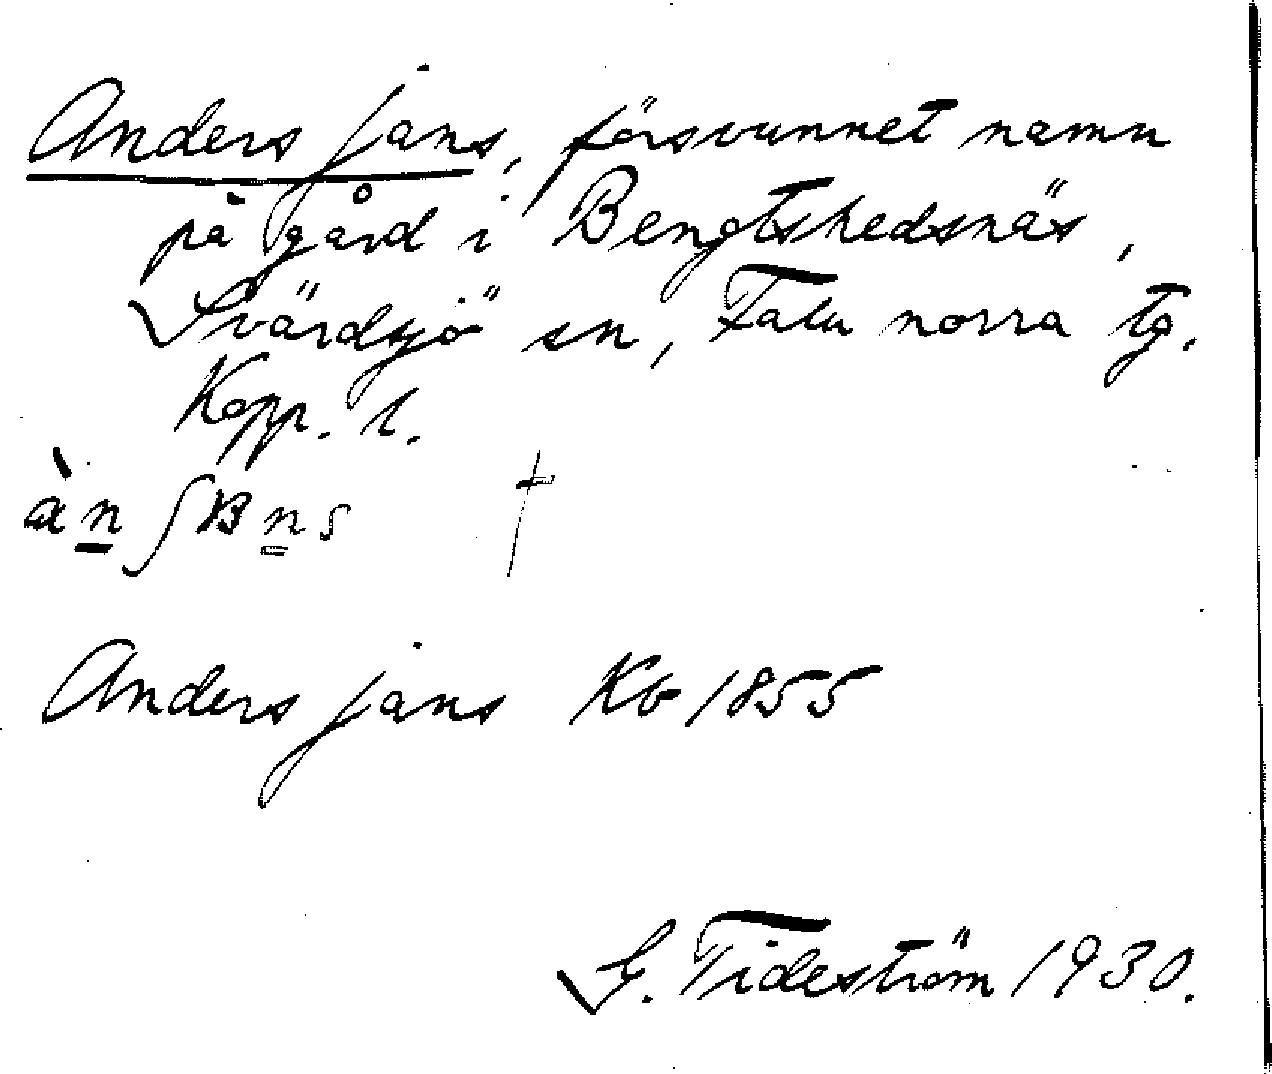 Anders jans, försvunnet namn
på gård i Bengtshedsnäs,
Svärdsjö sn, Falu norra tg.
Kopp. l.
Anders jans Kb 1855
G. Tideström 1930.